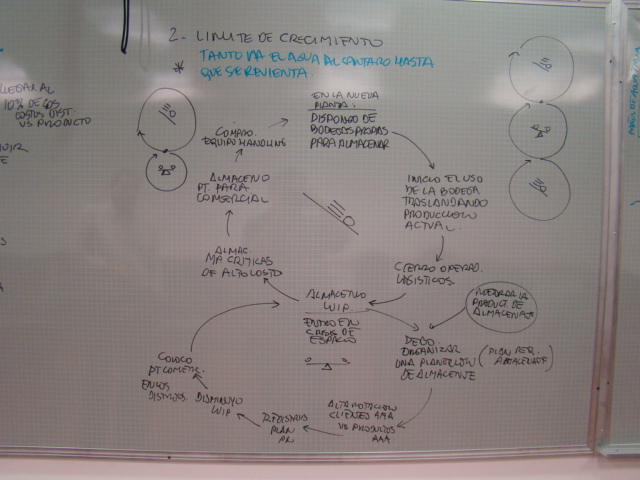 2- LIMITE DE CRECIMIENTO
* TANTO VA EL AGUA AL CANTARO HASTA
QUE SE REVIENTA.
LLEGAR AL
10% DE LOS
COSTOS DIST.
VS PRODUCTO
EN LA NUEVA
PLANTA:
DISPONGO DE
BODEGAS PROPIAS
PARA ALMACENAR
INICIO EL USO
DE LA BODEGA
TRASLADANDO
PRODUCCION
ACTUAL.
CIERRO OPERAD.
LOGISTICOS.
ALMACENO
WIP.
ENTRO EN
CRISIS DE
ESPACIO
ALMAC.
MA CRITICAS
DE ALTO COSTO
ALMACENO
PT. PARA
COMERCIAL
COMPRO
EQUIPO HANDLING
DEBO
ORGANIZAR
UNA PLANEACION
DE ALMACENAJE
PRODUCT. DE
ALMACENAJE
ALTA ROTACION
CLIENTES AAA
VS PRODUCTOS
AAA
PLAN
DISMINUYO
WIP
COLOCO
PT. COMERC.
EN LOS